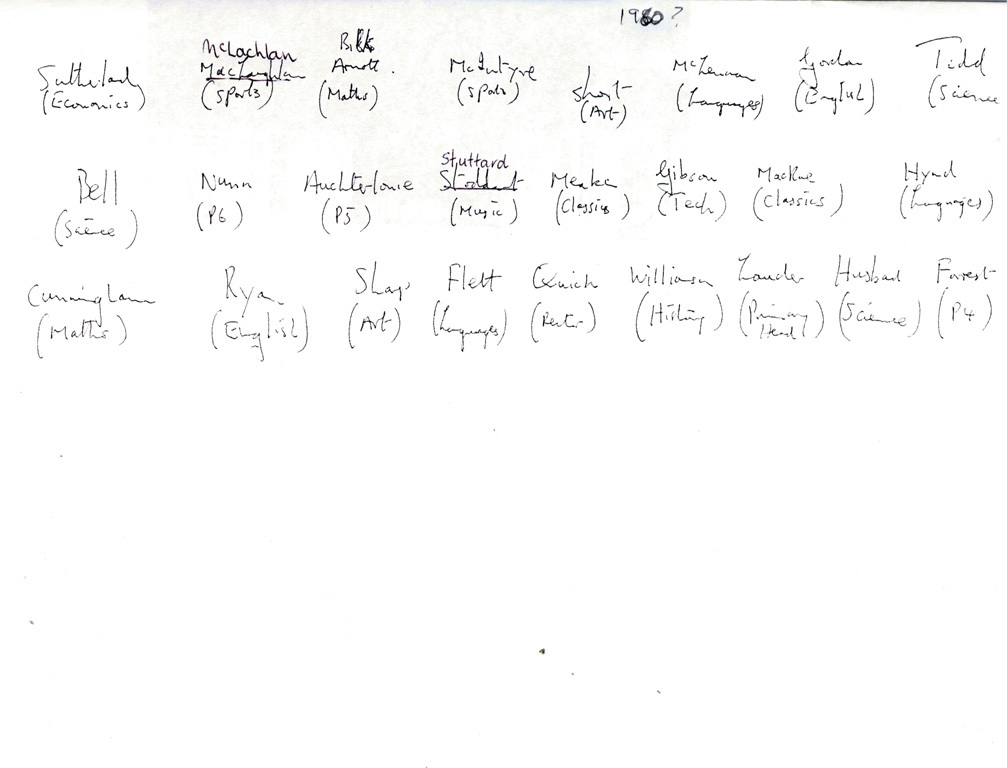 1980?
McLachlan Bill
Sutherland MacLaughlan Arnott. McIntyre Short McLennan Gordon Tidd
(Economics) (Sports) (Maths) (Sports) (Art) (Languages) (English) (Science
Stuttard
Bell Nunn Auchterlonie Stoddart Meaken Gibson MacRae Hynd
(Science) (P6) (P5) (Music) (Classics) (Tech) (Classics) (Languages)
Cunningham Ryan Sharp Flett Quick Williamson Lauder Husband Forrest
(Maths) (English) (Art) (Languages) (Rector) (History) (Primary Head) (Science) (P4)